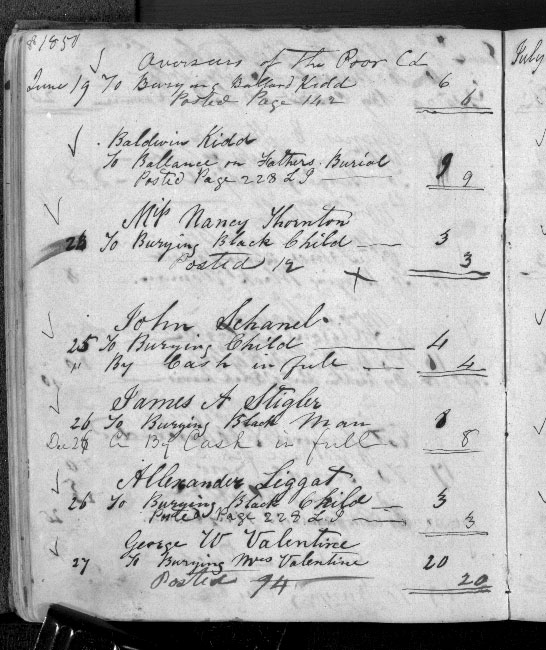 1850
Overseers of The Poor Cd
June 19 To Burying Ballard Kidd 6
Posted Page 142 6
Baldwin Kidd
To Ballance on Fathers Burial 9
Posted Page 228 L I 9
Miss Nancy Thornton
23 To Burying Black Child 3
Posted 12 3
John Schanel
25 To Burying Child 4
" By Cash in full 4
James A Stigler
26 To Burying Black Man 8
Dec 26 Cr By Cash in full 8
Allexander Liggat
26 To Burying Black Child 3
Posted Page 228 L I 3
George W Valentine
27 To Burying Mrs Valentine 20
Posted 94 20
July